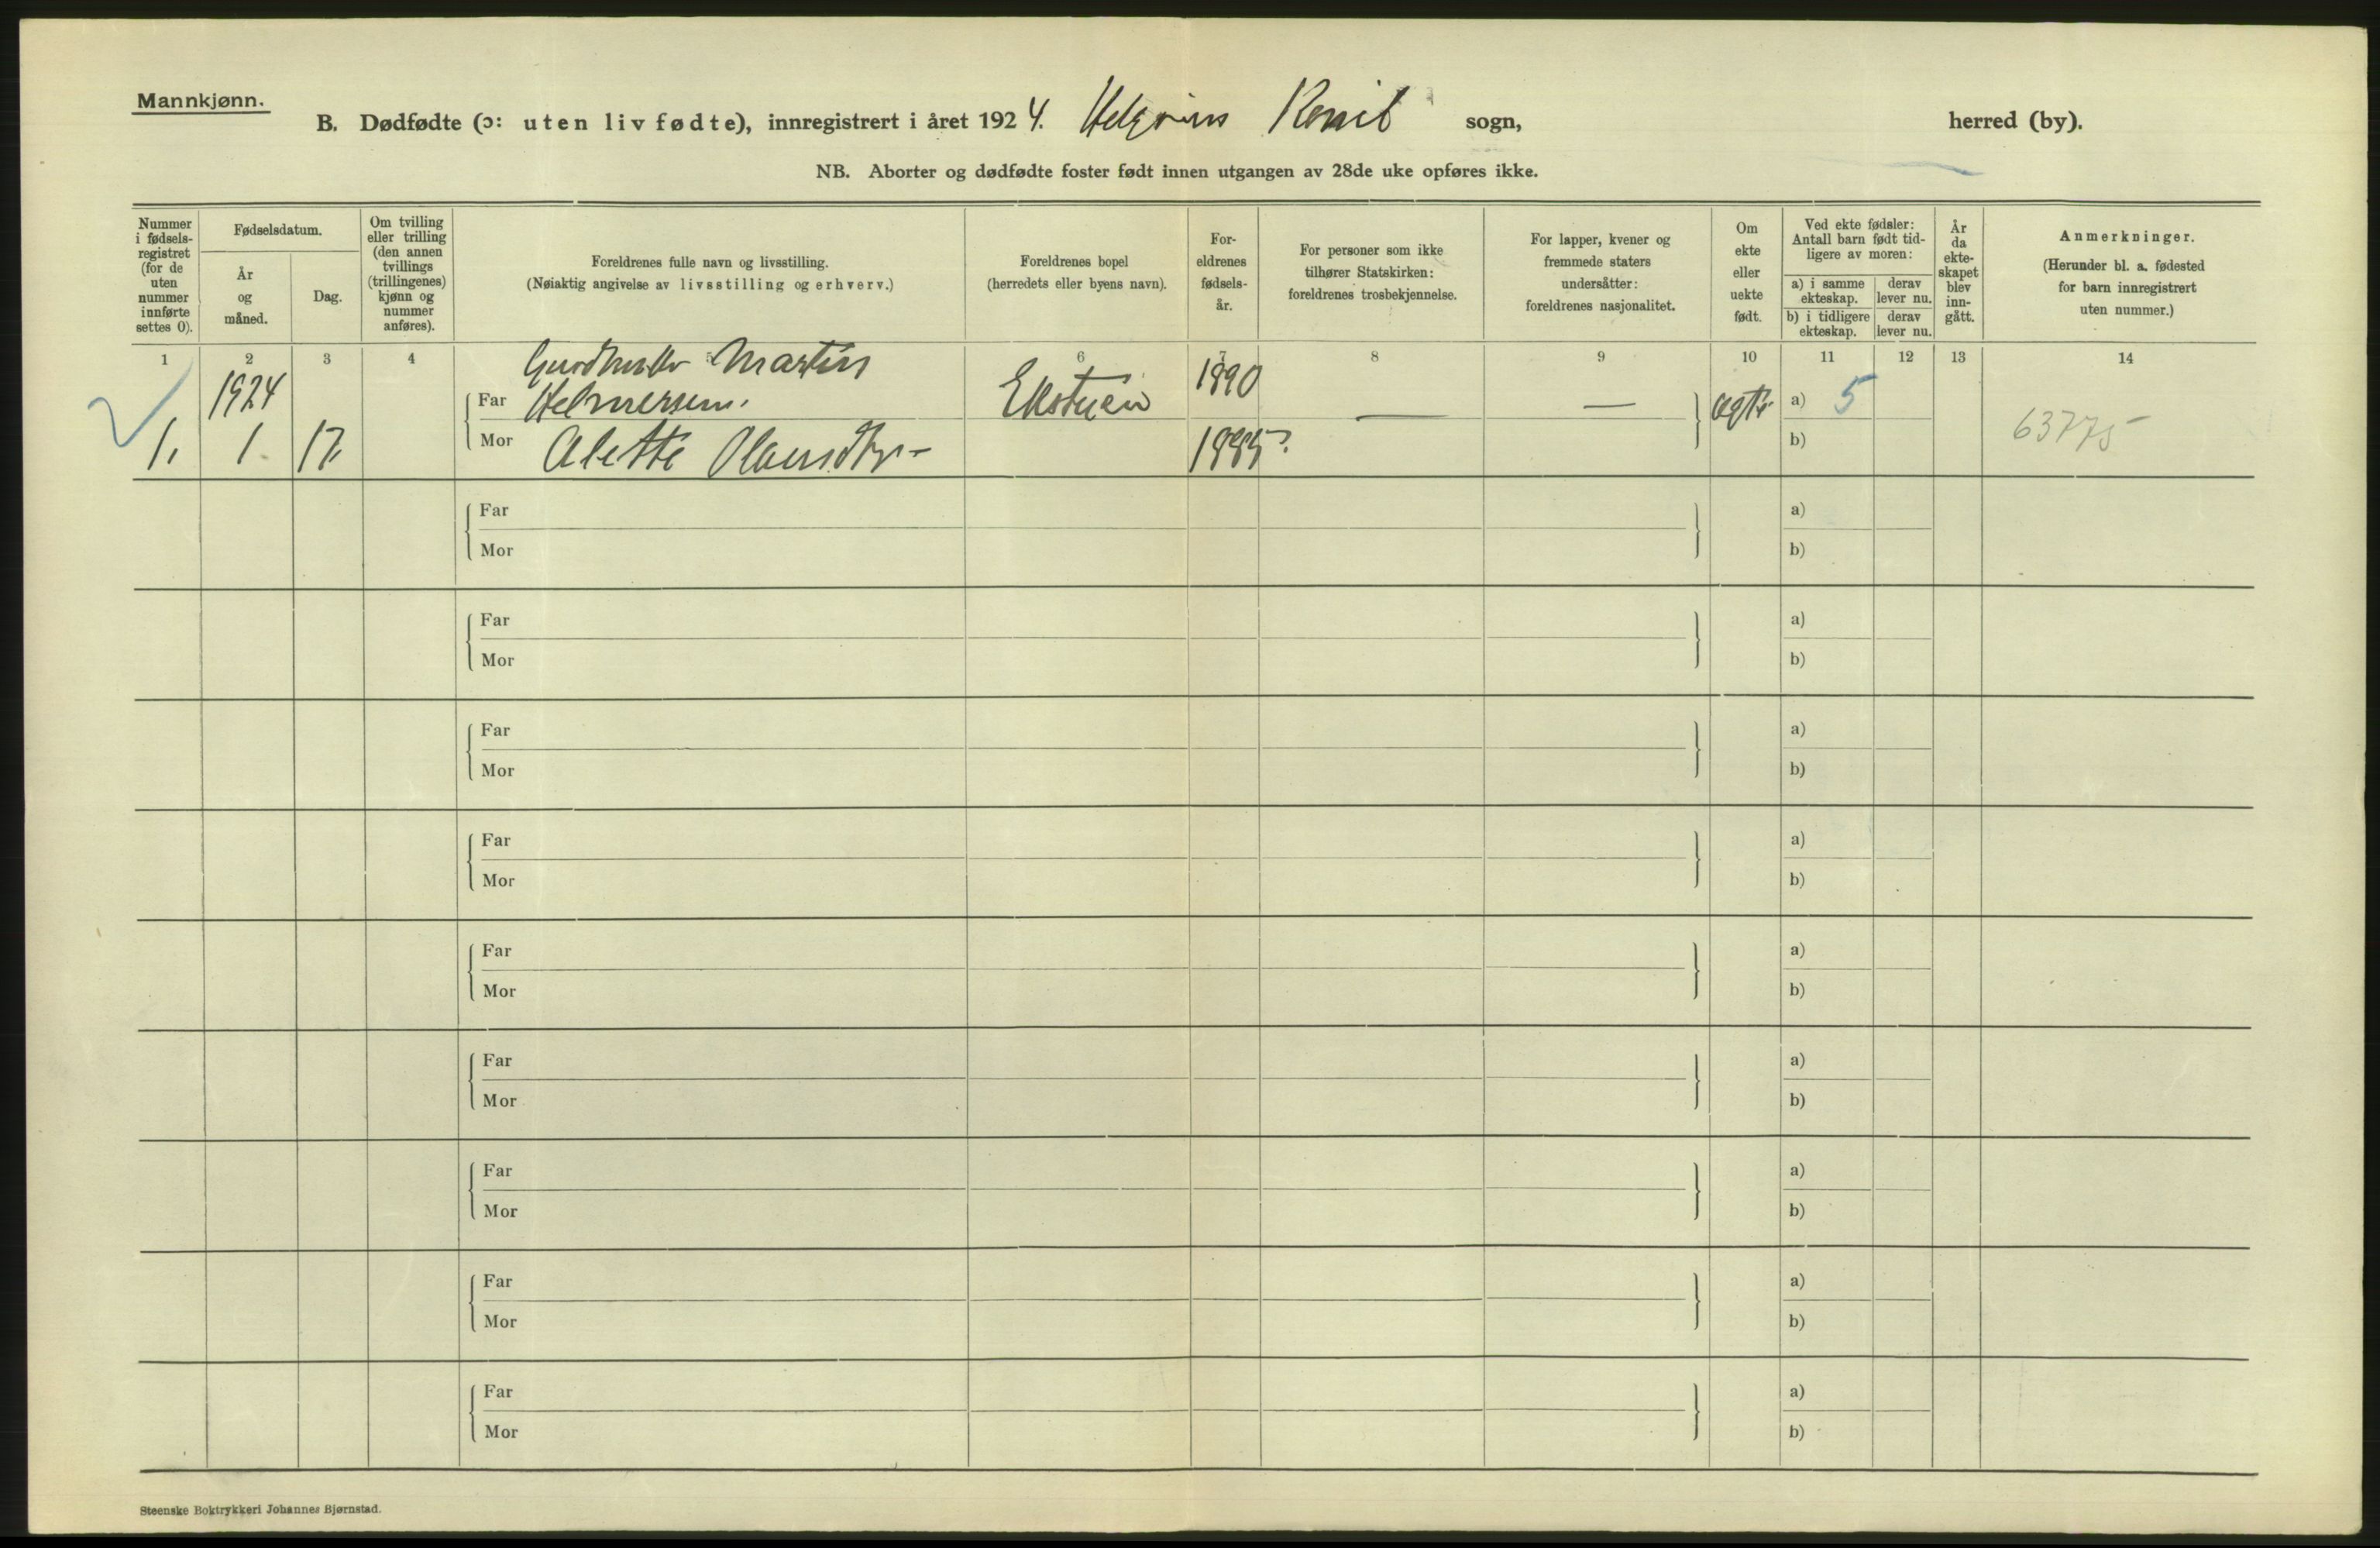 Mannkjønn.
B. Dødfødte (ɔ: uten liv fødte), innregistrert i året 1924. Helgøens sogn, herred (by).
NB. Aborter og dødfødte foster født innen utgangen av 28de uke opføres ikke.
Nummer
i fødsels-
registret
(for de
uten
nummer
innførte
settes 0).
Fødselsdatum.
År
og
måned.
Dag.
Om tvilling
eller trilling
(den annen
tvillings
(trillingenes)
kjønn og
nummer
anføres).
Foreldrenes fulle navn og livsstilling.
(Nøiaktig angivelse av livsstilling og erhverv.)
Foreldrenes bopel
(herredets eller byens navn).
For-
eldrenes
fødsels-
år.
For personer som ikke
tilhører Statskirken:
foreldrenes trosbekjennelse.
For lapper, kvener og
fremmede staters
undersåtter:
foreldrenes nasjonalitet.
Om
ekte
eller
uekte
født.
Ved ekte fødsler:
Antall barn født tid-
ligere av moren:
a) i samme
ekteskap.
derav
lever nu.
b) i tidligere
ekteskap.
derav
lever nu.
År
da
ekte-
skapet
blev
inn-
gått.
Anmerkninger.
(Herunder bl. a. fødested
for barn innregistrert
uten nummer.)
1 2 3 4 5 6 7 8 9 10 11 12 13 14
Martin
1924 Far Helmersen. 1890 — — a) 5
1. 1. 17. Mor Alette 1885? b) 63775
Far a)
Mor b)
Far a)
Mor b)
Far a)
Mor b)
Far a)
Mor b)
Far a)
Mor b)
Far a)
Mor b)
Far a)
Mor b)
Far a)
Mor b)
Far a)
Mor b)
Steenske Boktrykkeri Johannes Bjørnstad.